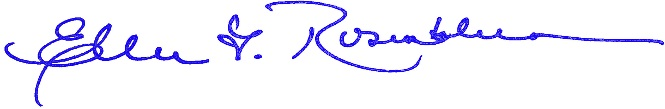 Ellen F. Rosenblum